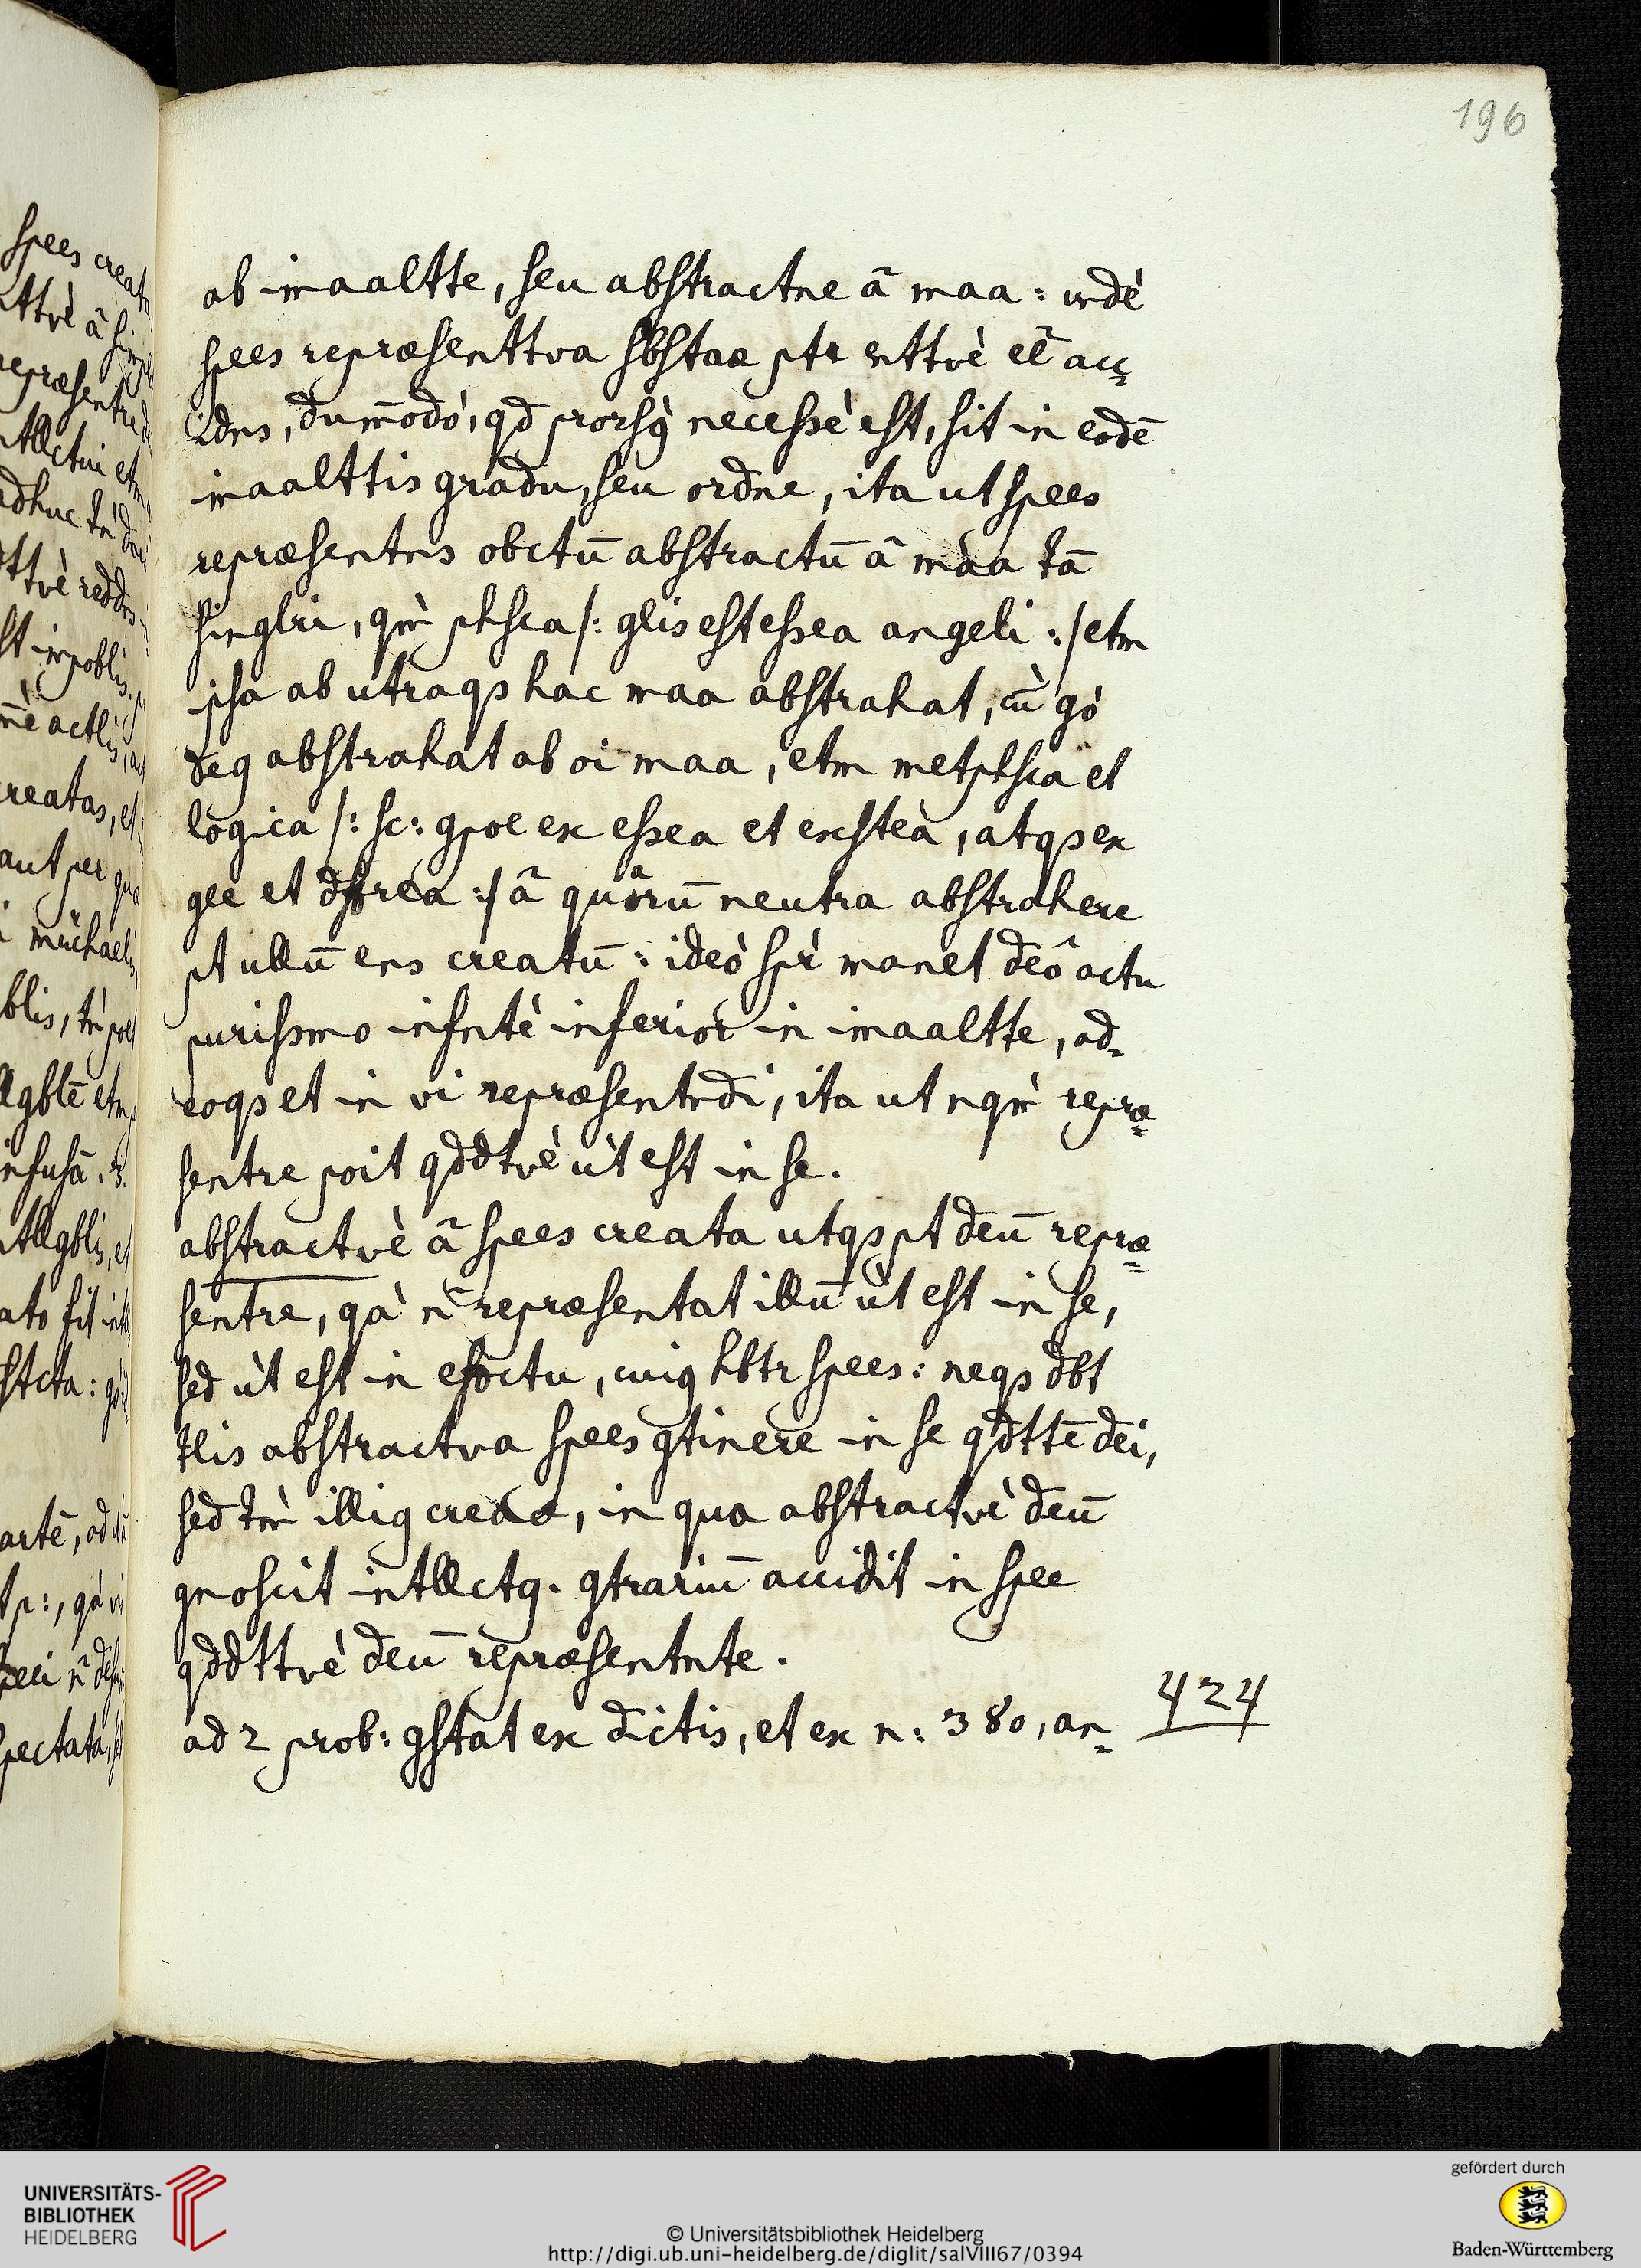 196
ab imaaltte, seu abstractne â maa: undè
spees repræsenttva sbstae ptr enttvè eê ac=
cidns, dum̄odò, qd prorsq necessè est, sit in eodē
imaalttis gradu, seu ordne, ita ut spees
repræsentns obctū abstractū â màa tā
singlri, qm̀ phsca /: glis est essea angeli :/ etm
ipsa ab utraqs hac maa abstrahat, cù gò
deq abstrahat ab oi maa, etm metphsca et
logica /: sc: gpoe ex essea et exsteà, atqs ex
gee et dffrea :/ â quârū neutra abstrahere
pt ullū ens creatū: ideò spr̀ manet deô actu
purissmo infntè inferior in imaaltte, ad=
eoqs et in vi repræsentndi, ita ut nqm̀ repræ=
sentre poit qddtvè ùt est in se.
abstractvè â spees creata utqs pt deū repræ=
sentre, qà n̂ repræsentat illū ùt est in se,
sed ùt est in effctu, cuiq hbtr spees: neqs dbt
tlis abstractva spees gtinere in se qdttē dei,
sed tm̀ illiq creae, in qua abstractvè deū
gnoscit intllctq. gtrariū accidit in spee
qddttvè deū repræsentnte.
ad 2 prob: gstat ex dictis, et ex n: 380, an=
424
spees creata
repræsentre
impoblis
creatas, et
aut per
michaelis
blis,
infusâ. 3.
spectata,
UNIVERSITÄTS-
BIBLIOTHEK
HEIDELBERG
© Universitätsbibliothek Heidelberg
http://digi.ub.uni-heidelberg.de/diglit/salVIII67/0394
gefördert durch
Baden-Württemberg